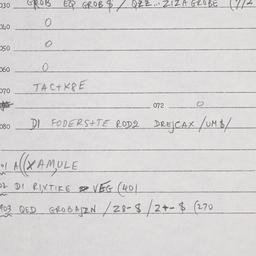 030 GROB EQ GROB $ / QZZ...ZIZA GROBE
040 0
050 0
060 0
070 TAC+K8E
072 0
080 DI FODERS+TE ROD2 DREJCAX /UM$/
01 A((XAMULE
02 DI RIXTIKE VEG (401
403 QED GROBAJZN /28-$ /2+-$ (270